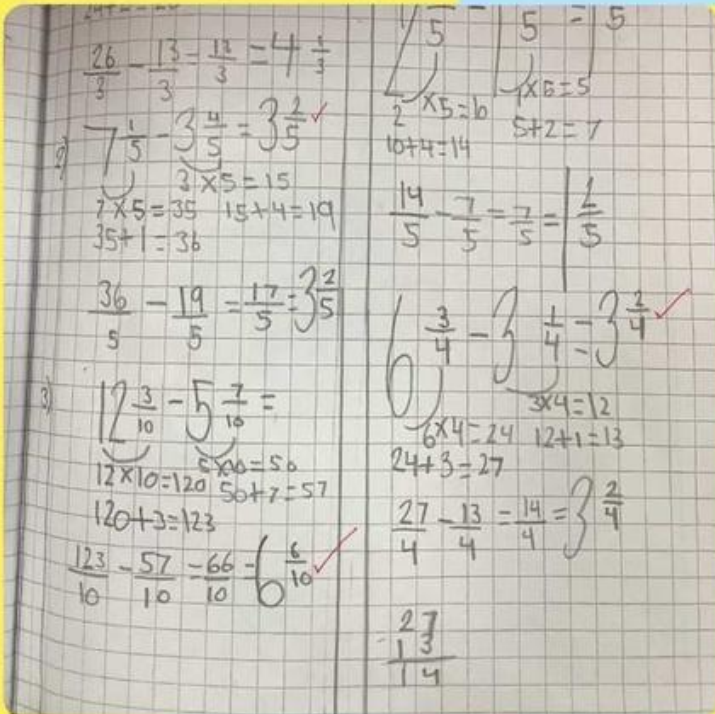 26/3 - 13/3 = 13/3 = 4 1/3
2) 7 1/5 - 3 4/5 = 3 2/5 ✓
3 × 5 = 15
7 × 5 = 35 15 + 4 = 19
35 + 1 = 36
36/5 - 19/5 = 17/5 = 3 2/5
3) 12 3/10 - 5 7/10 =
12 × 10 = 120 5 × 10 = 50
50 + 7 = 57
120 + 3 = 123
123/10 - 57/10 = 66/10 = 6 6/10 ✓
5 - 5 = 5
2 × 5 = 10 1 × 5 = 5
10 + 4 = 14 5 + 2 = 7
14/5 - 7/5 = 7/5 = 1 2/5
6 3/4 - 3 1/4 = 3 2/4 ✓
3 × 4 = 12
6 × 4 = 24 12 + 1 = 13
24 + 3 = 27
27/4 - 13/4 = 14/4 = 3 2/4
27
- 13
14